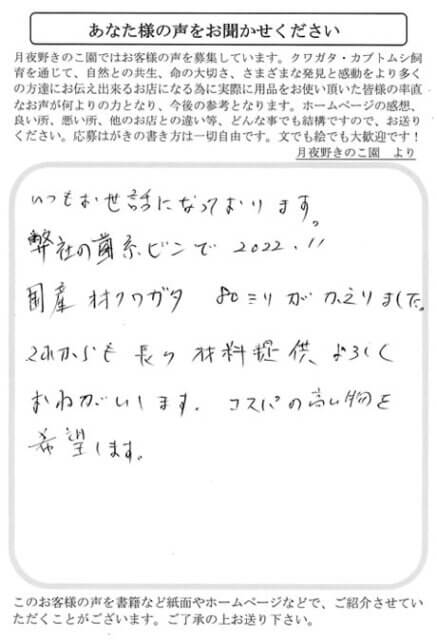 あなた様の声をお聞かせください
月夜野きのこ園ではお客様の声を募集しています。クワガタ・カブトムシ飼
育を通じて、自然との共生、命の大切さ、さまざまな発見と感動をより多く
の方達にお伝え出来るお店になる為に実際に用品をお使い頂いた皆様の率直
なお声が何よりの力となり、今後の参考となります。ホームページの感想、
良い所、悪い所、他のお店との違い等、どんな事でも結構ですので、お送り
ください。応募はがきの書き方は一切自由です。文でも絵でも大歓迎です！
月夜野きのこ園　より
いつもお世話になっております。
弊社の菌糸ビンで 2022.11
国産 オオクワガタ 80ミリがかえりました。
これからも 長く 材料提供、よろしく
おねがいします。コスパの高い物を
希望します。
このお客様の声を書籍など紙面やホームページなどで、ご紹介させてい
ただくことがございます。ご了承の上お送り下さい。